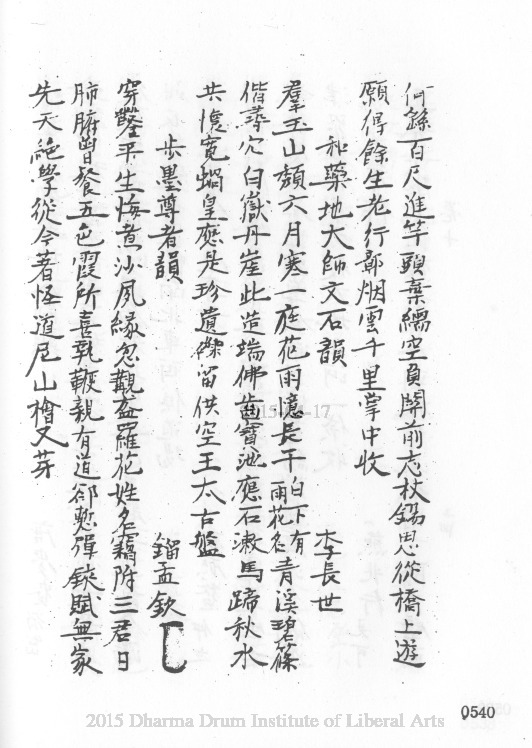 何餘百尺進竿頭棄繻空負關前志杖錫思從橋上遊
願得餘生老行鄣烟雲千里掌中收
和藥地大師文石韻 李長世
羣玉山頹六月寒一庭花雨憶長干白下有雨花名青溪碧篠
偕尋穴白嶽丹崖此造端佛齒寶池應石漱馬蹄秋水
共懷寬蝸皇應是珍遺留供空王太古盤
步墨尊者韻 鎦孟欽
穿鑿平生悔煮沙夙緣忽覯益羅花姓名竊附三君日
肺腑曾餐五色霞所喜執鞭親有道卻慙彈鋏賦無家
先天絕學從今著怪道尼山檜又芽
0540
2015 Dharma Drum Institute of Liberal Arts